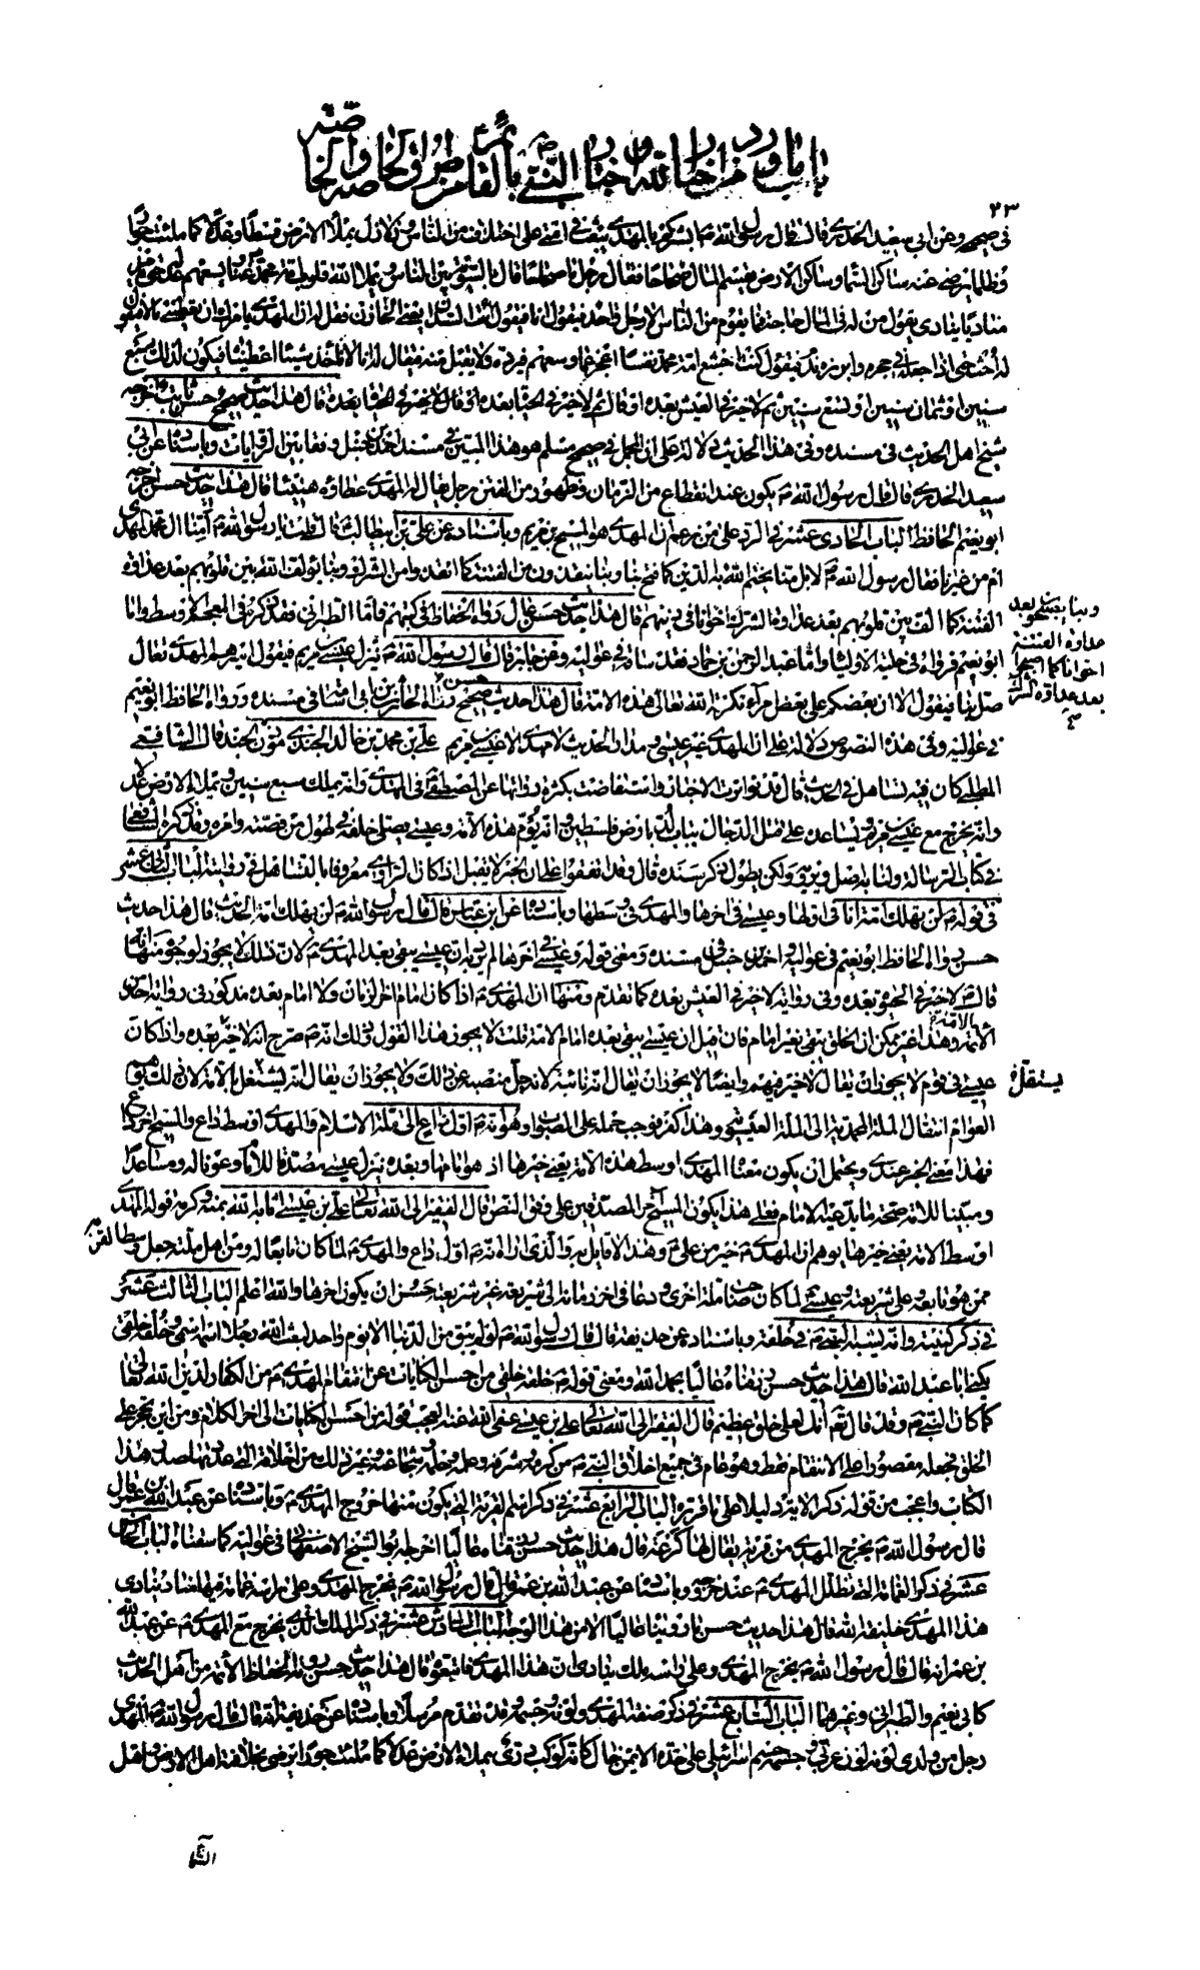 باب ما ورد من اخبار الله واخبار النبي بالقائم من طرق الخاصة والعامة
٢٣
في صحيحه وعن ابي سعيد الخدري قال قال رسول الله ص ابشركم بالمهدي يبعث في امتي على اختلاف من الناس وزلازل يملأ الارض قسطا وعدلا كما ملئت جورا
وظلما يرضى عنه ساكن السماء وساكن الارض يقسم المال صحاحا فقال رجل ما صحاحا قال بالسوية بين الناس ويملأ الله قلوب امة محمد غنا ويسعهم عدله حتى يأمر
مناديا ينادي يقول من له في المال حاجة فما يقوم من الناس الا رجل واحد فيقول انا فيقول ائت السدان يعني الخازن فقل له ان المهدي يأمرك ان تعطيني مالا فيقول
له احث حتى اذا جعله في حجره وابرزه ندم فيقول كنت اجشع امة محمد نفسا اعجز عما وسعهم فيرده ولا يقبل منه فيقال له انا لا نأخذ شيئا اعطيناه فيكون لذلك سبع
سنين او ثمان سنين او تسع سنين ثم لا خير في العيش بعده او قال ثم لا خير في الحياة بعده قال هذا حديث صحيح حسن ثابت اخرجه
شيخ اهل الحديث في مسنده وفي هذا الحديث دلالة على ان المجمل في صحيح مسلم هو هذا المبين في مسند احمد بن حنبل وفقا بين الروايات وباسناده عن ابي
سعيد الخدري قال قال رسول الله ص يكون عند انقطاع من الزمان وظهور من الفتن رجل يقال له المهدي عطاؤه هنيئا قال هذا حديث حسن اخرجه
ابو نعيم الحافظ الباب الحادي عشر في الرد على من زعم ان المهدي هو المسيح بن مريم وباسناده عن علي بن ابي طالب قال قلت يا رسول الله ص أمنا آل محمد المهدي
ام من غيرنا فقال رسول الله ص لا بل منا يختم الله به الدين كما فتح بنا وبنا ينقذون من الفتنة كما انقذوا من الشرك وبنا يؤلف الله بين قلوبهم بعد عداوة
الفتنة كما الف بين قلوبهم بعد عداوة الشرك اخوانا في دينهم قال هذا حديث حسن عال رواه الحفاظ في كتبهم فاما الطبراني فقد ذكره في المعجم الاوسط واما
وبنا يصبحون بعد
عداوة الفتنة
اخوانا كما اصبحوا
بعد عداوة الشرك
ابو نعيم فرواه في حلية الاولياء واما عبد الرحمن بن حماد فقد ساقه في عواليه وعن جابر قال قال رسول الله ص ينزل عيسى بن مريم فيقول اميرهم المهدي تعال
صل بنا فيقول لا ان بعضكم على بعض امراء تكرمة الله تعالى هذه الامة قال هذا حديث صحيح حسن رواه الحارث بن ابي اسامة في مسنده ورواه الحافظ ابو نعيم
في عواليه وفي هذه النصوص دلالة على ان المهدي غير عيسى ومدار الحديث لا مهدي الا عيسى بن مريم علي بن محمد بن خالد الجندي مؤذن الجند قال الشافعي
المطلبي كان فيه تساهل في الحديث قال قد تواترت الاخبار واستفاضت بكثرة رواتها عن المصطفى في المهدي وانه يملك سبع سنين ويملأ الارض عدلا
وانه يخرج مع عيسى بن مريم ويساعده على قتل الدجال بباب لد بارض فلسطين وانه يؤم هذه الامة وعيسى يصلي خلفه في طول من قصته وامره وقد ذكره الشافعي
في كتاب الرسالة ولنا به اصل ونرويه ولكن يطول ذكر سنده قال وقد اتفقوا على ان الخبر لا يقبل اذا كان الراوي معروفا بالتساهل في روايته الباب الثاني عشر
في قوله ص لن تهلك امة انا في اولها وعيسى في اخرها والمهدي في وسطها وباسناده عن ابن عباس قال قال رسول الله ص لن تهلك امة الحديث قال هذا حديث
حسن رواه الحافظ ابو نعيم في عواليه واحمد بن حنبل في مسنده ومعنى قوله وعيسى في اخرها لم يرد ان عيسى يبقى بعد المهدي ص لان ذلك لا يجوز لوجوه منها انه
قال ص ثم لا خير في الحيوة بعده وفي رواية لا خير في العيش بعده كما تقدم ومنها ان المهدي ص اذا كان امام اخر الزمان ولا امام بعده مذكور في رواية احد من
الائمة وهذا غير ممكن ان الخلق يبقى بغير امام فان قيل ان عيسى يبقى بعده امام الامة قلت لا يجوز هذا القول وذلك انه ص صرح انه لا خير بعده واذا كان
عيسى في قوم لا يجوز ان يقال لا خير فيهم وايضا لا يجوز ان يقال انه نائبه لانه جل منصبه عن ذلك ولا يجوز ان يقال انه يستقل بالامة لان ذلك يوهم
يستقل ه
العوام انتقال الملة المحمدية الى الملة العيسوية وهذا كفر فوجب حمله على الصواب وهو انه ص اول داع الى ملة الاسلام والمهدي اوسط داع والمسيح اخر داع
فهذا معنى الخبر عندي ويحتمل ان يكون معناه المهدي اوسط هذه الامة يعني خيرها اذ هو امامها وبعده ينزل عيسى مصدقا للامام وعونا له ومساعدا
ومبينا للامة صحة ما يدعيه الامام فعلى هذا يكون المسيح اخر المصدقين على وفق النص قال الفقير الى الله تعالى علي بن عيسى اثابه الله بمنه وكرمه قوله المهدي
اوسط الامة يعني خيرها يوهم ان المهدي ص خير من علي ص وهذا لا قايل به والذي اراه انه ص اول داع والمهدي ص لما كان تابعا له ومن اهل ملته جعل وسطا لقربه
ممن هو تابعه وعلى شريعته وعيسى لما كان صاحب ملة اخرى ودعا في اخر زمانه الى شريعة غير شريعته حسن ان يكون اخرها والله اعلم الباب الثالث عشر
في ذكر كنيته وانه يشبه النبي ص في خلقه وباسناده عن حذيفة قال قال رسول الله ص لو لم يبق من الدنيا الا يوم واحد لبعث الله رجلا اسمه اسمي وخلقه خلقي
يكنى ابا عبد الله قال هذا حديث حسن رزقناه عاليا بحمد الله ومعنى قوله ص خلقه خلقي من احسن الكنايات عن انتقام المهدي ص من الكفار لدين الله تعالى
كما كان النبي ص وقد قال تعالى انك لعلى خلق عظيم قال الفقير الى الله تعالى علي بن عيسى عفى الله عنه العجب قوله من احسن الكنايات الى اخر الكلام ومن اين تحجر على
الخلق فجعله مقصورا على الانتقام فقط وهو عام في جميع اخلاق النبي ص من كرمه وشرفه وعلمه وحلمه وشجاعته وغير ذلك من اخلاقه التي عددتها صدر هذا
الكتاب واعجب من قوله ذكر الاية دليلا على ما قرره الباب الرابع عشر في ذكر اسم القرية التي يكون منها خروج المهدي ص وباسناده عن عبد الله بن عمر قال
قال رسول الله ص يخرج المهدي من قرية يقال لها كرعة قال هذا حديث حسن رزقناه عاليا اخرجه ابو الشيخ الاصفهاني في عواليه كما سقناه الباب الخامس
عشر في ذكر الغمامة التي تظلل المهدي ص عند خروجه وباسناده عن عبد الله بن عمر قال قال رسول الله ص يخرج المهدي وعلى رأسه غمامة فيها مناد ينادي
هذا المهدي خليفة الله قال هذا حديث حسن ما رويناه عاليا الا من هذا الوجه الباب السادس عشر في ذكر الملك الذي يخرج مع المهدي ص عن عبد الله
بن عمر انه قال قال رسول الله ص يخرج المهدي وعلى رأسه ملك ينادي ان هذا المهدي فاتبعوه قال هذا حديث حسن روته الحفاظ الائمة من اهل الحديث
كابي نعيم والطبراني وغيرهما الباب السابع عشر في ذكر صفة المهدي ولونه وجسمه وقد تقدم مرسلا وباسناده عن حذيفة انه قال قال رسول الله ص المهدي
رجل من ولدي لونه لون عربي وجسمه جسم اسرائيلي على خده الايمن خال كانه كوكب دري يملأ الارض عدلا كما ملئت جورا يرضى بخلافته اهل الارض واهل
السماء